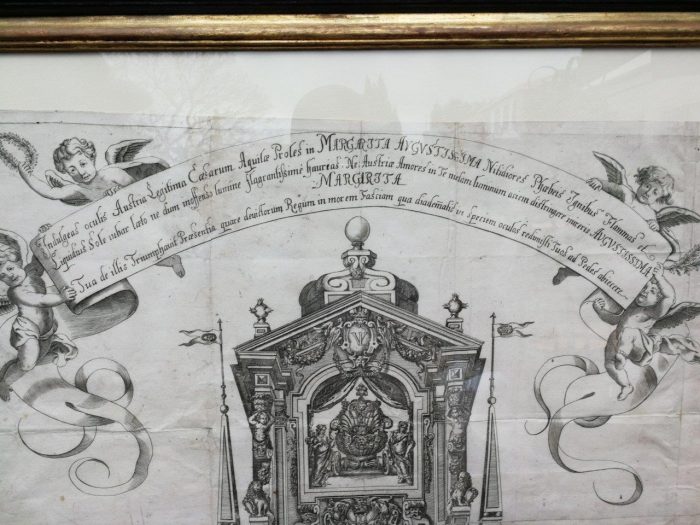 Indulgeas oculis Austria Legitima Cæsarum Aquilæ Proles in MARGARITA AVGVSTISSIMA Nitidiores Phœbeis Ignibus Flammas et
Liquidius Sole iubar Iato ne dum inoffenso lumine flagrantissime haureas. Ne Austriæ Amores in Te nudam hominum aciem distinguere mereris AVGVSTISSIMA
MARGARITA
Tua de illis Triumphauit Præsentia quare deuictorum Regum in morem Fasciam qua diadematis in speciem oculos redimisti Tuos ad Pedes abiicere